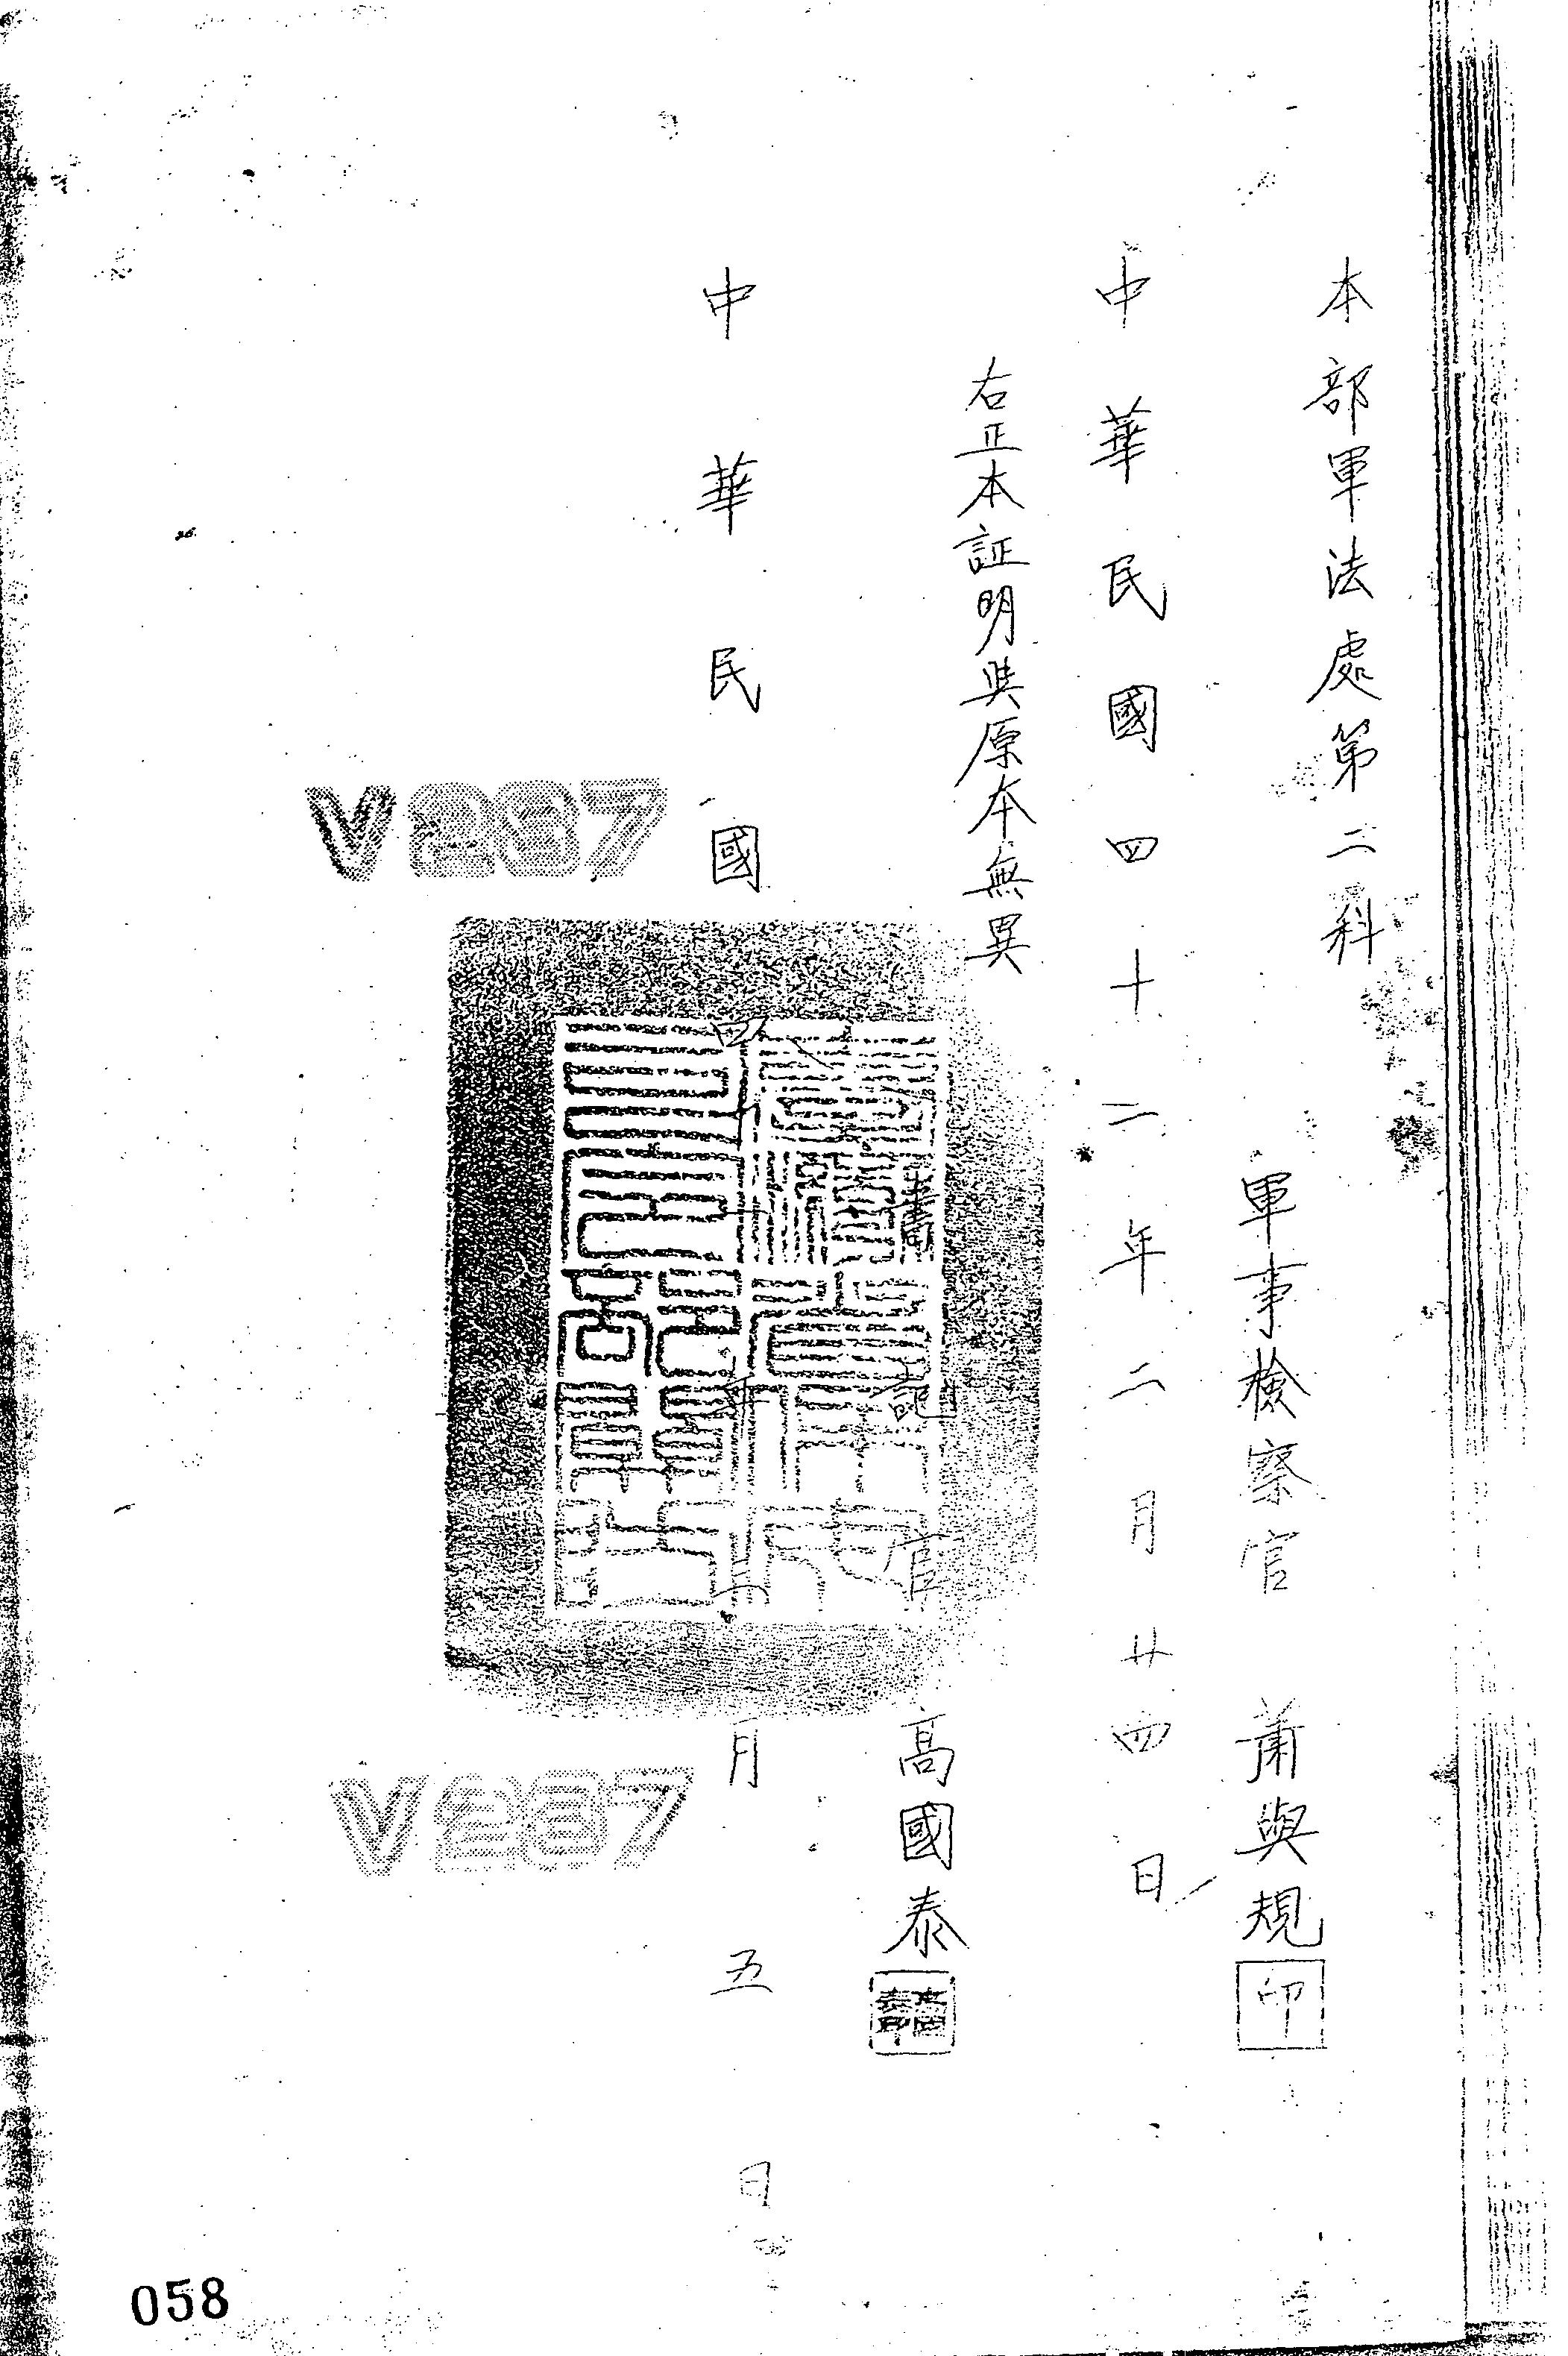 本部軍法處第二科
軍事檢察官 萧與規 印
中華民國四十二年二月廿四日
右正本証明與原本無異
書記官 高國泰
中華民國四十二年 月五日
V287
V287
058